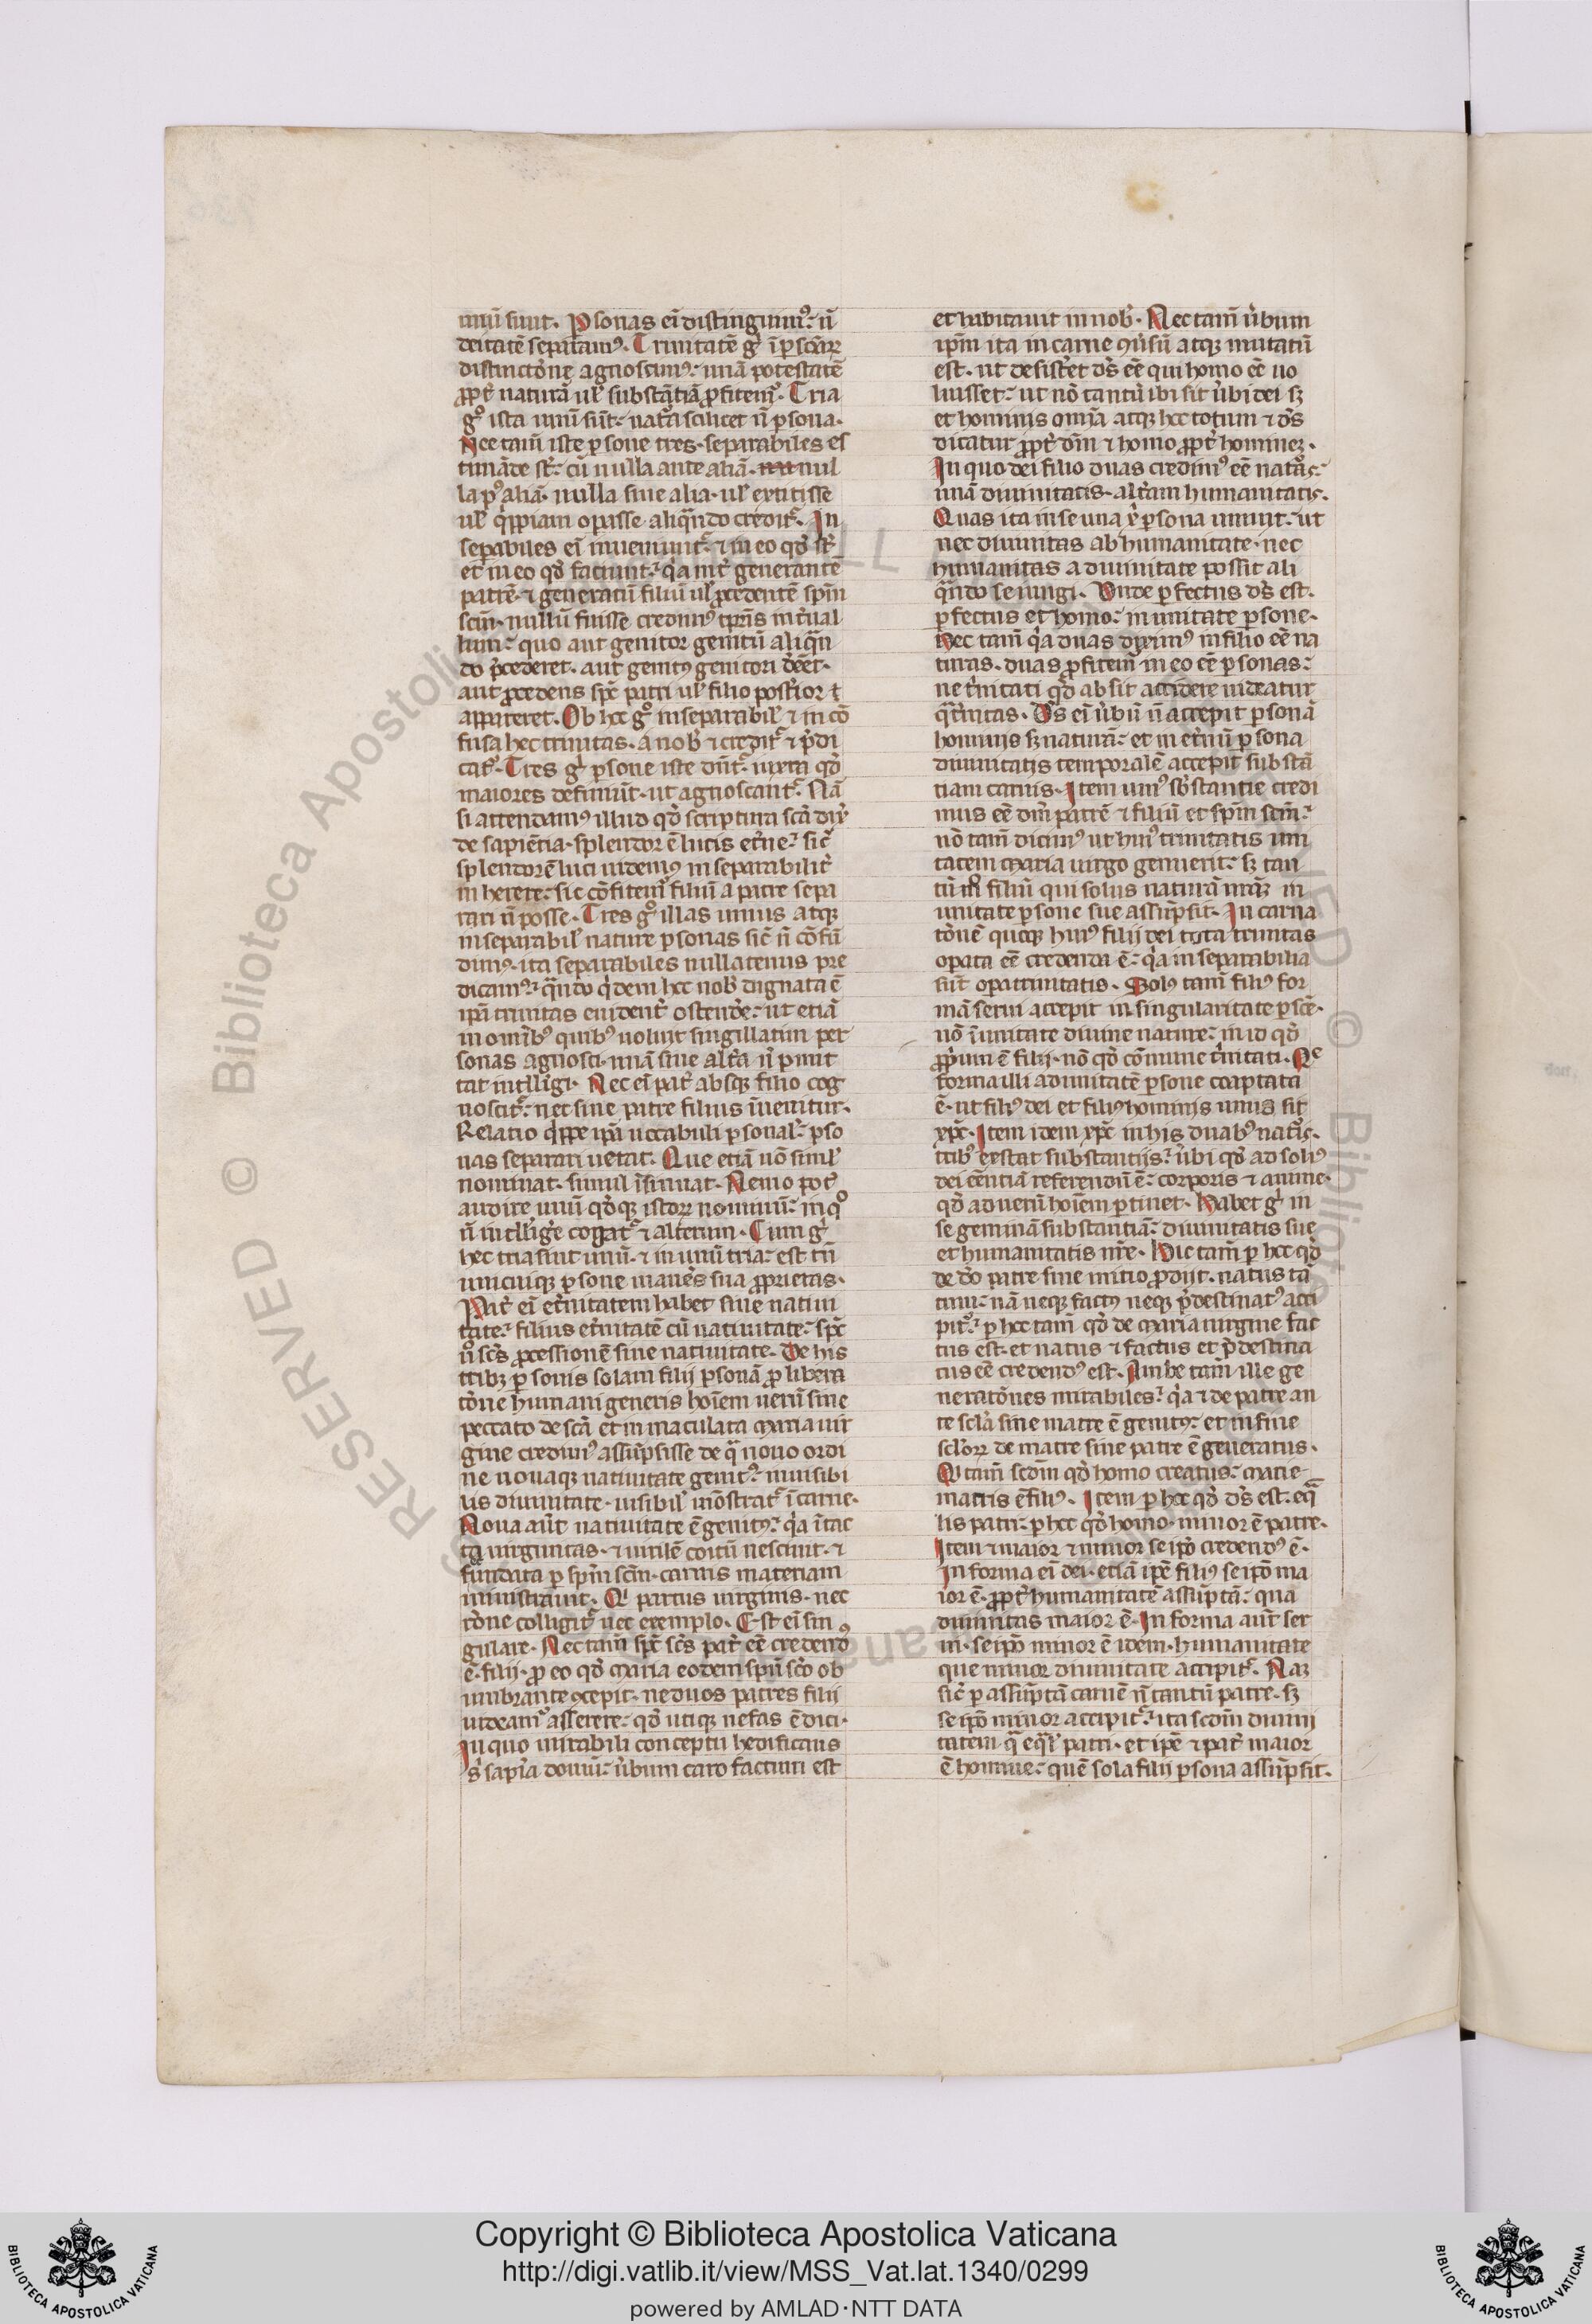 unū sunt. Psonas ei distinguimꝰ: ñ
deitatē separamꝰ. Trinitatē gͦ ī psonaꝝ
distinctōne agnoscimꝰ: unā potestatē
ꝓpt̃ naturā ul̃ substātiā ꝓfitemꝰ. Tria
gͦ ista unū sūt: nat̃a scilicet ñ psona.
Nec tam̄ iste psone tres. separabiles es
timāde sūt: cū nulla ante aliā. nul
la pꝰ aliā. nulla sine alia. ul̃ extitisse
ul̃ q̃ppiam opasse aliq̄ndo credit̃. In
sepabiles ei inueniunt̃. ⁊ in eo qd̄ sūt
et in eo qd̄ faciunt: q̃a int̃ generantē
patrē. ⁊ generatū filiū ul̃ ꝓcedentē spm̄
scm̄. nullū fuisse credimꝰ tp̄ris int̃ual
lum: quo aut genitor genitū aliq̄n
do p̃cederet. aut genitꝰ genitori deēt.
aut ꝓcedens spc̄ patri ul̃ filio post̃ior
appareret. Ob hec gͦ inseparabil̃ ⁊ in cō
fusa hec trinitas. a nob̄ ⁊ credit̃ ⁊ p̃di
cat̃. Tres gͦ psone iste dn̄t̃. iuxta qd̄
maiores definiūt. ut agnoscant̃. Nā
si attendamꝰ illud qd̄ scriptura sc̄a dix̃
de sapiētia. splendor ē lucis et̃ne: sic̃
splendorē luci uidemꝰ inseparabilit̃
in herere: sic cōfitem̃ filiū a patre sepa
rari ñ posse. Tres gͦ illas unius atqꝫ
inseparabil̃ nature psonas sic̃ ñ cōfū
dimꝰ. ita separabiles nullatenus pre
dicamꝰ: q̄ndo q̃dem hec nob̄ dignata ē
ip̄a trinitas euident̃ ostend̃e: ut etiā
in omībꝰ quibꝰ uoluit singillatim per
sonas agnosci. unā sine alt̃a ñ pmit
tat intll̃igi. Nec ei pat̃ absqꝫ filio cog
noscit̃: nec sine patre filius īuenitur.
Relatio q̃ppe ip̄a uocabuli psonal̃: pso
nas separari uetat. Que etiā nō simul̃
nominat. simul īsinuat. Nemo pot̃
audire unū qd̄qꝫ istoꝝ nominū: in qͦ
ñ intll̃ig̃e cogat̃ ⁊ alterum. Cum gͦ
hec tria sint unū. ⁊ in unū tria: est tn̄
unicuiqꝫ psone manēs sua ꝓprietas.
Pat̃ ei et̃nitatem habet sine natiui
tate: filius et̃nitatē cū natiuitate: spc̄
ũo sc̄s ꝓcessionē sine natiuitate. De his
tribꝫ psonis solam filij psonā ꝓ libera
tōne humani generis hoīem uerū sine
peccato de sc̄a et inmaculata maria uir
gine credimꝰ assūpsisse de q̄ nouo ordi
ne nouaqꝫ natiuitate genitꝰ: inuisibi
lis diuinitate. uisibil̃ mōstrat̃ ī carne.
Noua aūt natiuitate ē genitꝰ: q̃a ītac
ta uirginitas. ⁊ uirilē coitū nesciuit. ⁊
fūndata p spm̄ scm̄. carnis materiam
ministrauit. Qi partus uirginis. nec
rōne colligit̃ nec exemplo. Est ei sin
gulare. Nec tam̄ spc̄ sc̄s pat̃ eē credendꝰ
ē. filij. ꝓ eo qd̄ maria eodem spū sc̄o ob
umbrante ꝯcepit. ne duos patres filij
uideamꝰ asserere: qd̄ utiqꝫ nefas ē dici.
In quo mirabili conceptu hedificans
s̃ sapīa domū: ũbum caro factum est
et habitauit in nob̄. Nec tam̄ ũbum
ip̄m ita in carne ꝯũsū atqꝫ mutatū
est. ut desist̃et dꝰs eē qui homo eē uo
luisset: ut nō tantū ibi sit ũbū dei sꝫ
et hominis anīa atqꝫ hec totum ⁊ dꝰs
dicatur ꝓpt̃ dm̄ ⁊ homo ꝓpt̃ hominez.
In quo dei filio duas credimꝰ eē nat̃as:
unā diuinitatis. alt̃am humanitatis.
Quas ita in se una xp̄i psona uniuit: ut
nec diuinitas ab humanitate. nec
humanitas a diuinitate possit ali
q̄ndo seiungi. Vnde pfectus dꝰs est.
pfectus et homo: in unitate psone.
Nec tam̄ q̃a duas diximꝰ in filio eē na
turas. duas ꝓfitem̃ in eo eē psonas:
ne t̃nitati qd̄ absit accidere uideatur
q̄t̃nitas. Dꝰs ei ũbū ñ accepit psonā
hominis sꝫ naturā: et in et̃nū psona
diuinitatis temporalē accepit substā
tiam carnis. Item unīꝰ sb̄stantie credi
mus eē dm̄ patrē ⁊ filiū et spm̄ scm̄:
nō tam̄ dicimꝰ ut huiꝰ trinitatis uni
tatem maria uirgo genuerit: sꝫ tan
tū m̊ filiū qui solus naturā nr̄aꝫ in
unitate psone sue assūpsit. In carna
tōnē quoqꝫ huiꝰ filij dei tota trinitas
opata eē credenda ē: q̃a inseparabilia
sūt opa trinitatis. Solꝰ tam̄ filiꝰ for
mā serui accepit in singularitate psōe.
nō ī unitate diuine nature: in id qd̄
ꝓp̃um ē filij. nō qd̄ cōmune t̃nitati. Qͤ
forma illi ad unitatē psone coaptata
ē. ut filiꝰ dei et filiꝰ hominis unus sit
xp̄c. Item idem xp̄c in his duabꝰ nat̃is.
tribꝰ exstat substantijs: ũbi qd̄ ad soliꝰ
dei cēntiā referendū ē: corporis ⁊ anime.
qd̄ ad uerū hoīem ptinet. Habet gͦ in
se geminā substantiā: diuinitatis sue
et humanitatis nr̄e. Hic tam̄ p hec qd̄
de d̄o patre sine initio ꝓdijt. natus tā
tum: nā neqꝫ factꝰ neqꝫ p̃destinatꝰ acci
pit̃: p hec tam̄ qd̄ de maria uirgine fac
tus est. et natus ⁊ factus et p̃destina
tus eē credendꝰ est. Ambe tam̄ ille ge
neratōnes mirabiles: q̃a ⁊ de patre an
te scl̃a sine matre ē genitꝰ: et in fine
scl̃oꝝ de matre sine patre ē generatus.
Qi tam̄ scdm̄ qd̄ homo creatus: marie
matris ē filiꝰ. Item p hec qd̄ dꝰs est. eq̄
lis patri: p hec qd̄ homo. minor ē patre.
Item ⁊ maior ⁊ minor seip̄o credendꝰ ē.
In forma ei dei. etiā ip̄e filiꝰ seip̄o ma
ior ē. ꝓpt̃ humanitatē assūptā: qua
diuinitas maior ē. In forma aūt ser
ui. seip̄o minor ē idem. humanitate
que minor diuinitate accipit̃. Naꝫ
sic̃ p assūptā carnē ñ tantū patre. sꝫ
seip̄o minor accipit̃: ita scdm̄ diuini
tatem q̄ eq̄l̃ patri. et ip̄e ⁊ pat̃ maior
ē homine: quē sola filij psona assūpsit.
Copyright © Biblioteca Apostolica Vaticana
http://digi.vatlib.it/view/MSS_Vat.lat.1340/0299
powered by AMLAD·NTT DATA